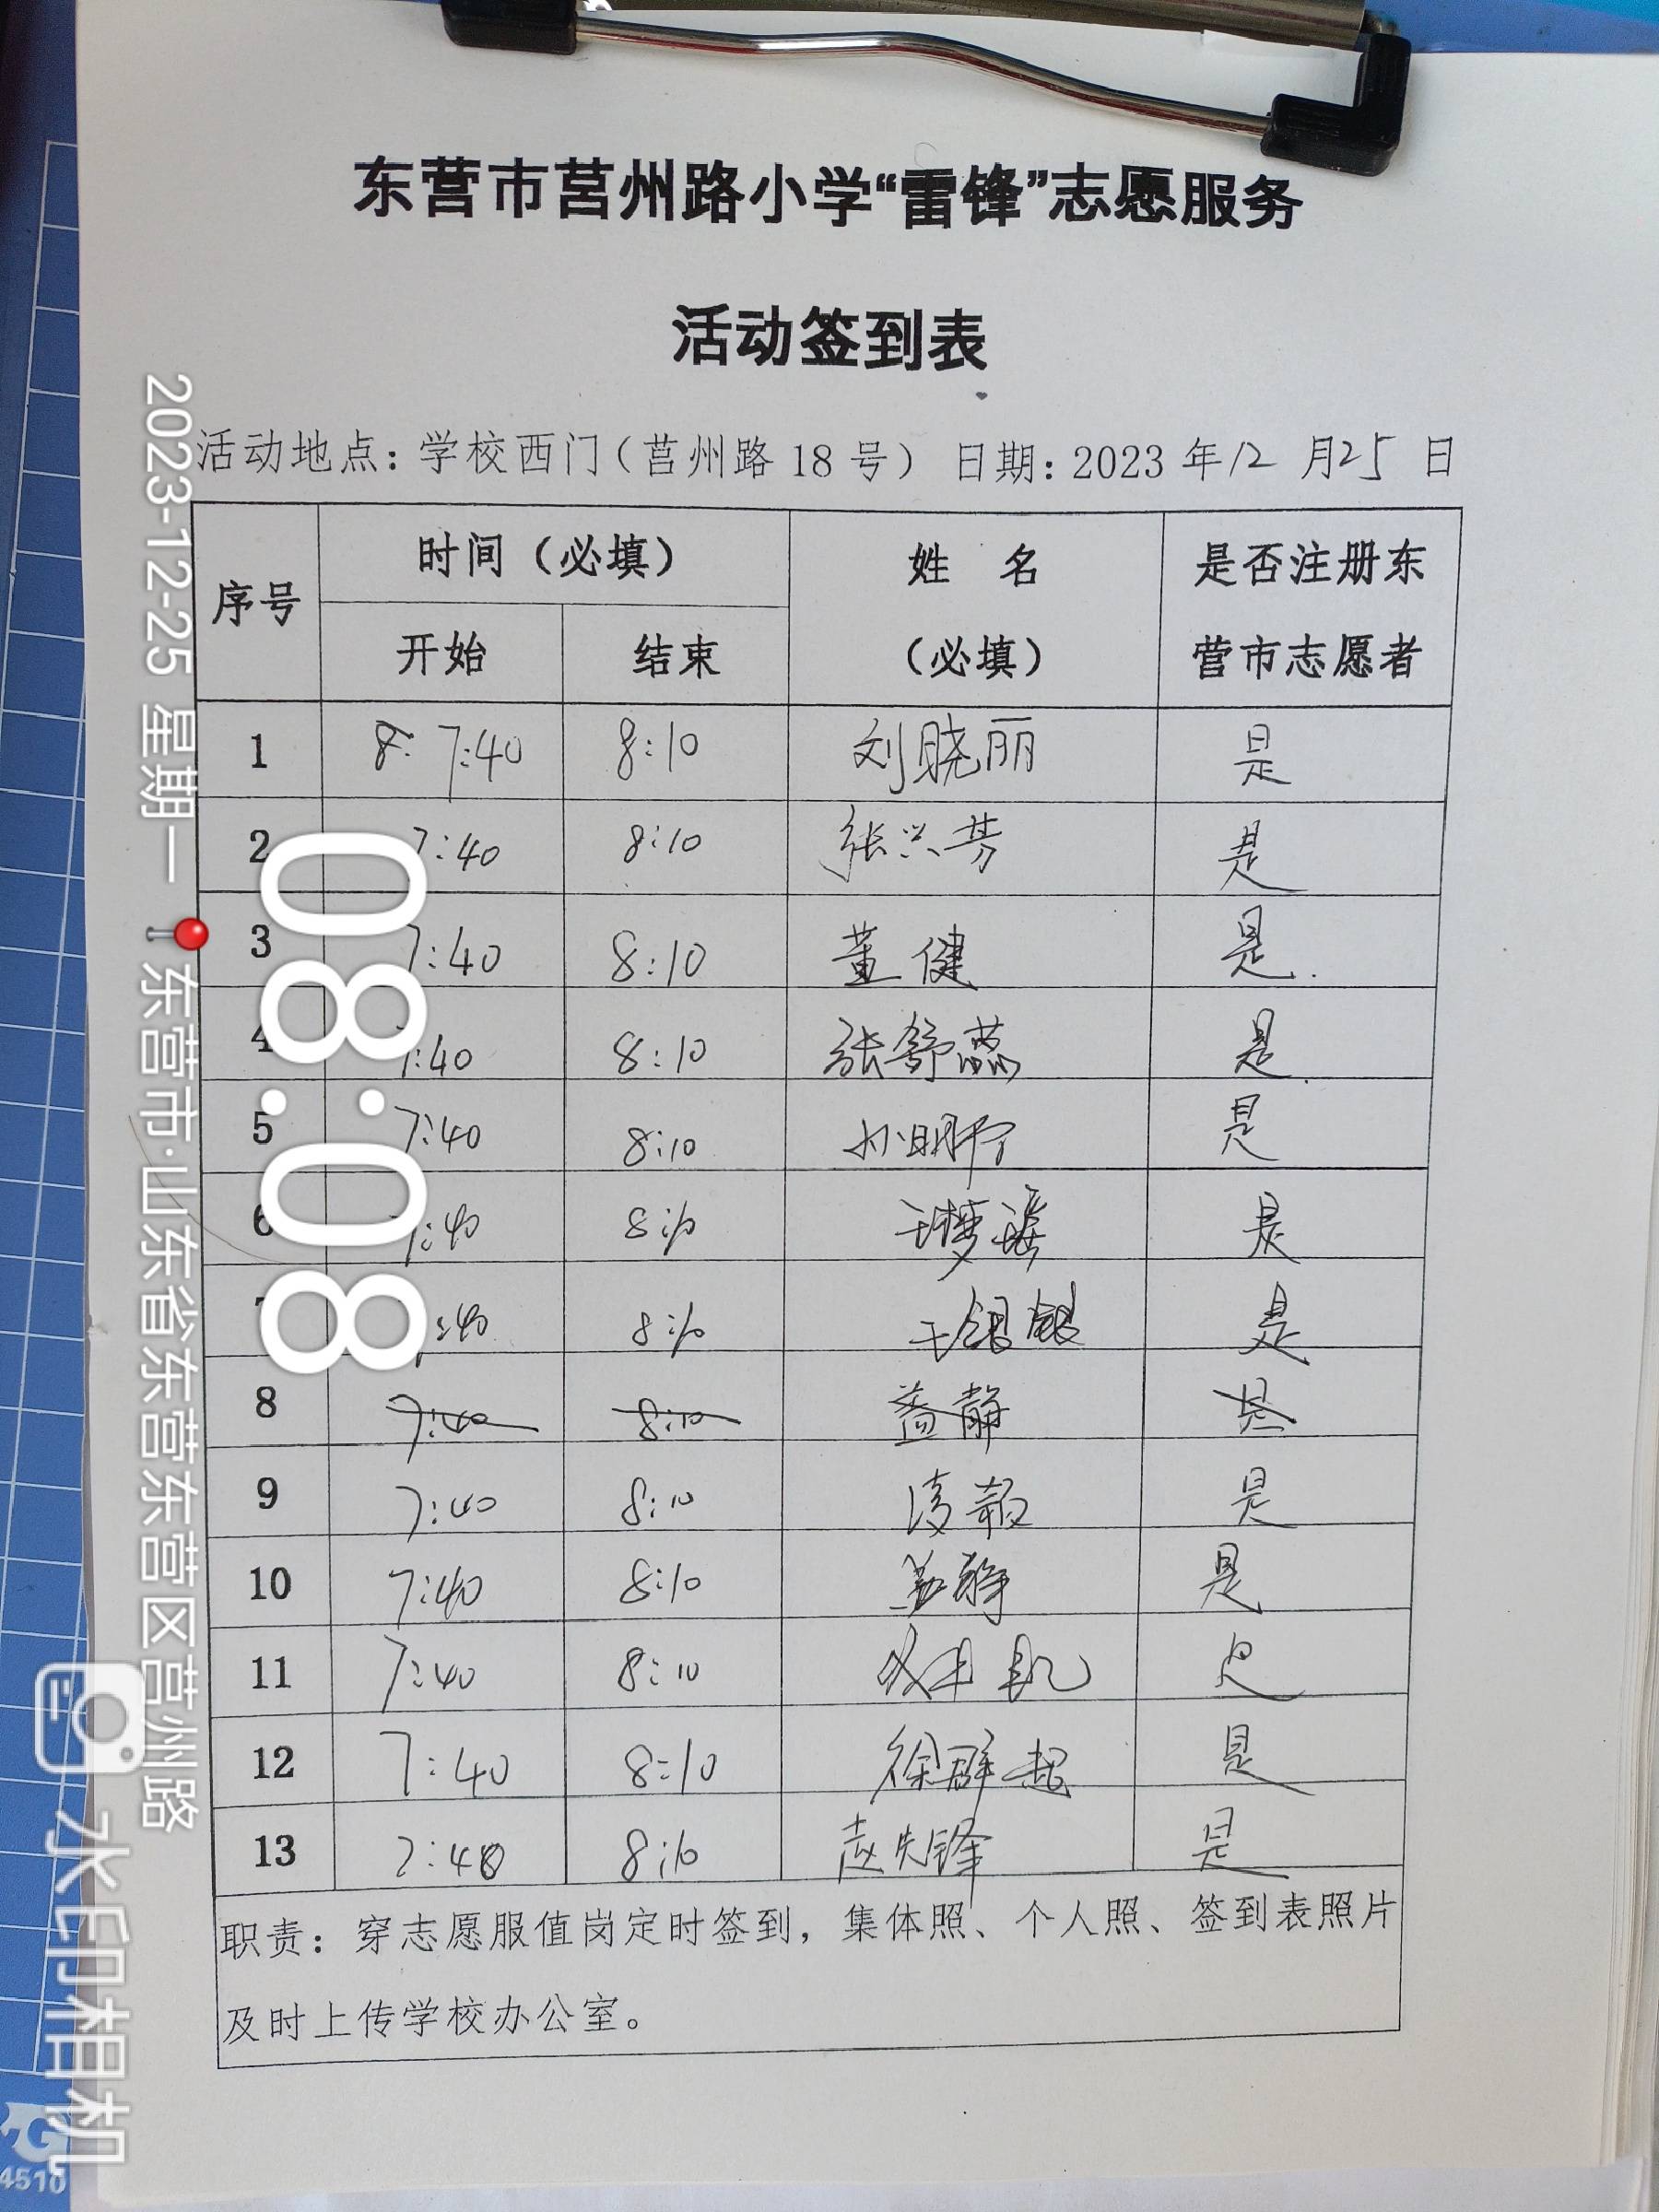 东营市莒州路小学“雷锋”志愿服务
活动签到表
活动地点：学校西门（莒州路18号） 日期：2023年12月25日
序号 时间（必填） 姓 名 是否注册东
开始 结束 （必填） 营市志愿者
1 8: 7:40 8:10 刘晓丽 是
2 7:40 8:10 张兴芳 是
3 7:40 8:10 董健 是
4 7:40 8:10 张舒蕊 是
5 7:40 8:10 是
6 7:40 8:10 王梦瑶 是
7 7:40 8:10 王银银 是
8 7:40 8:10 盖静 是
9 7:40 8:10 是
10 7:40 8:10 盖静 是
11 7:40 8:10 是
12 7:40 8:10 徐群起 是
13 7:40 8:10 赵先锋 是
职责：穿志愿服值岗定时签到，集体照、个人照、签到表照片
及时上传学校办公室。
08:08
2023-12-25 星期一 东营市·山东省东营东营区莒州路
水印相机
4510